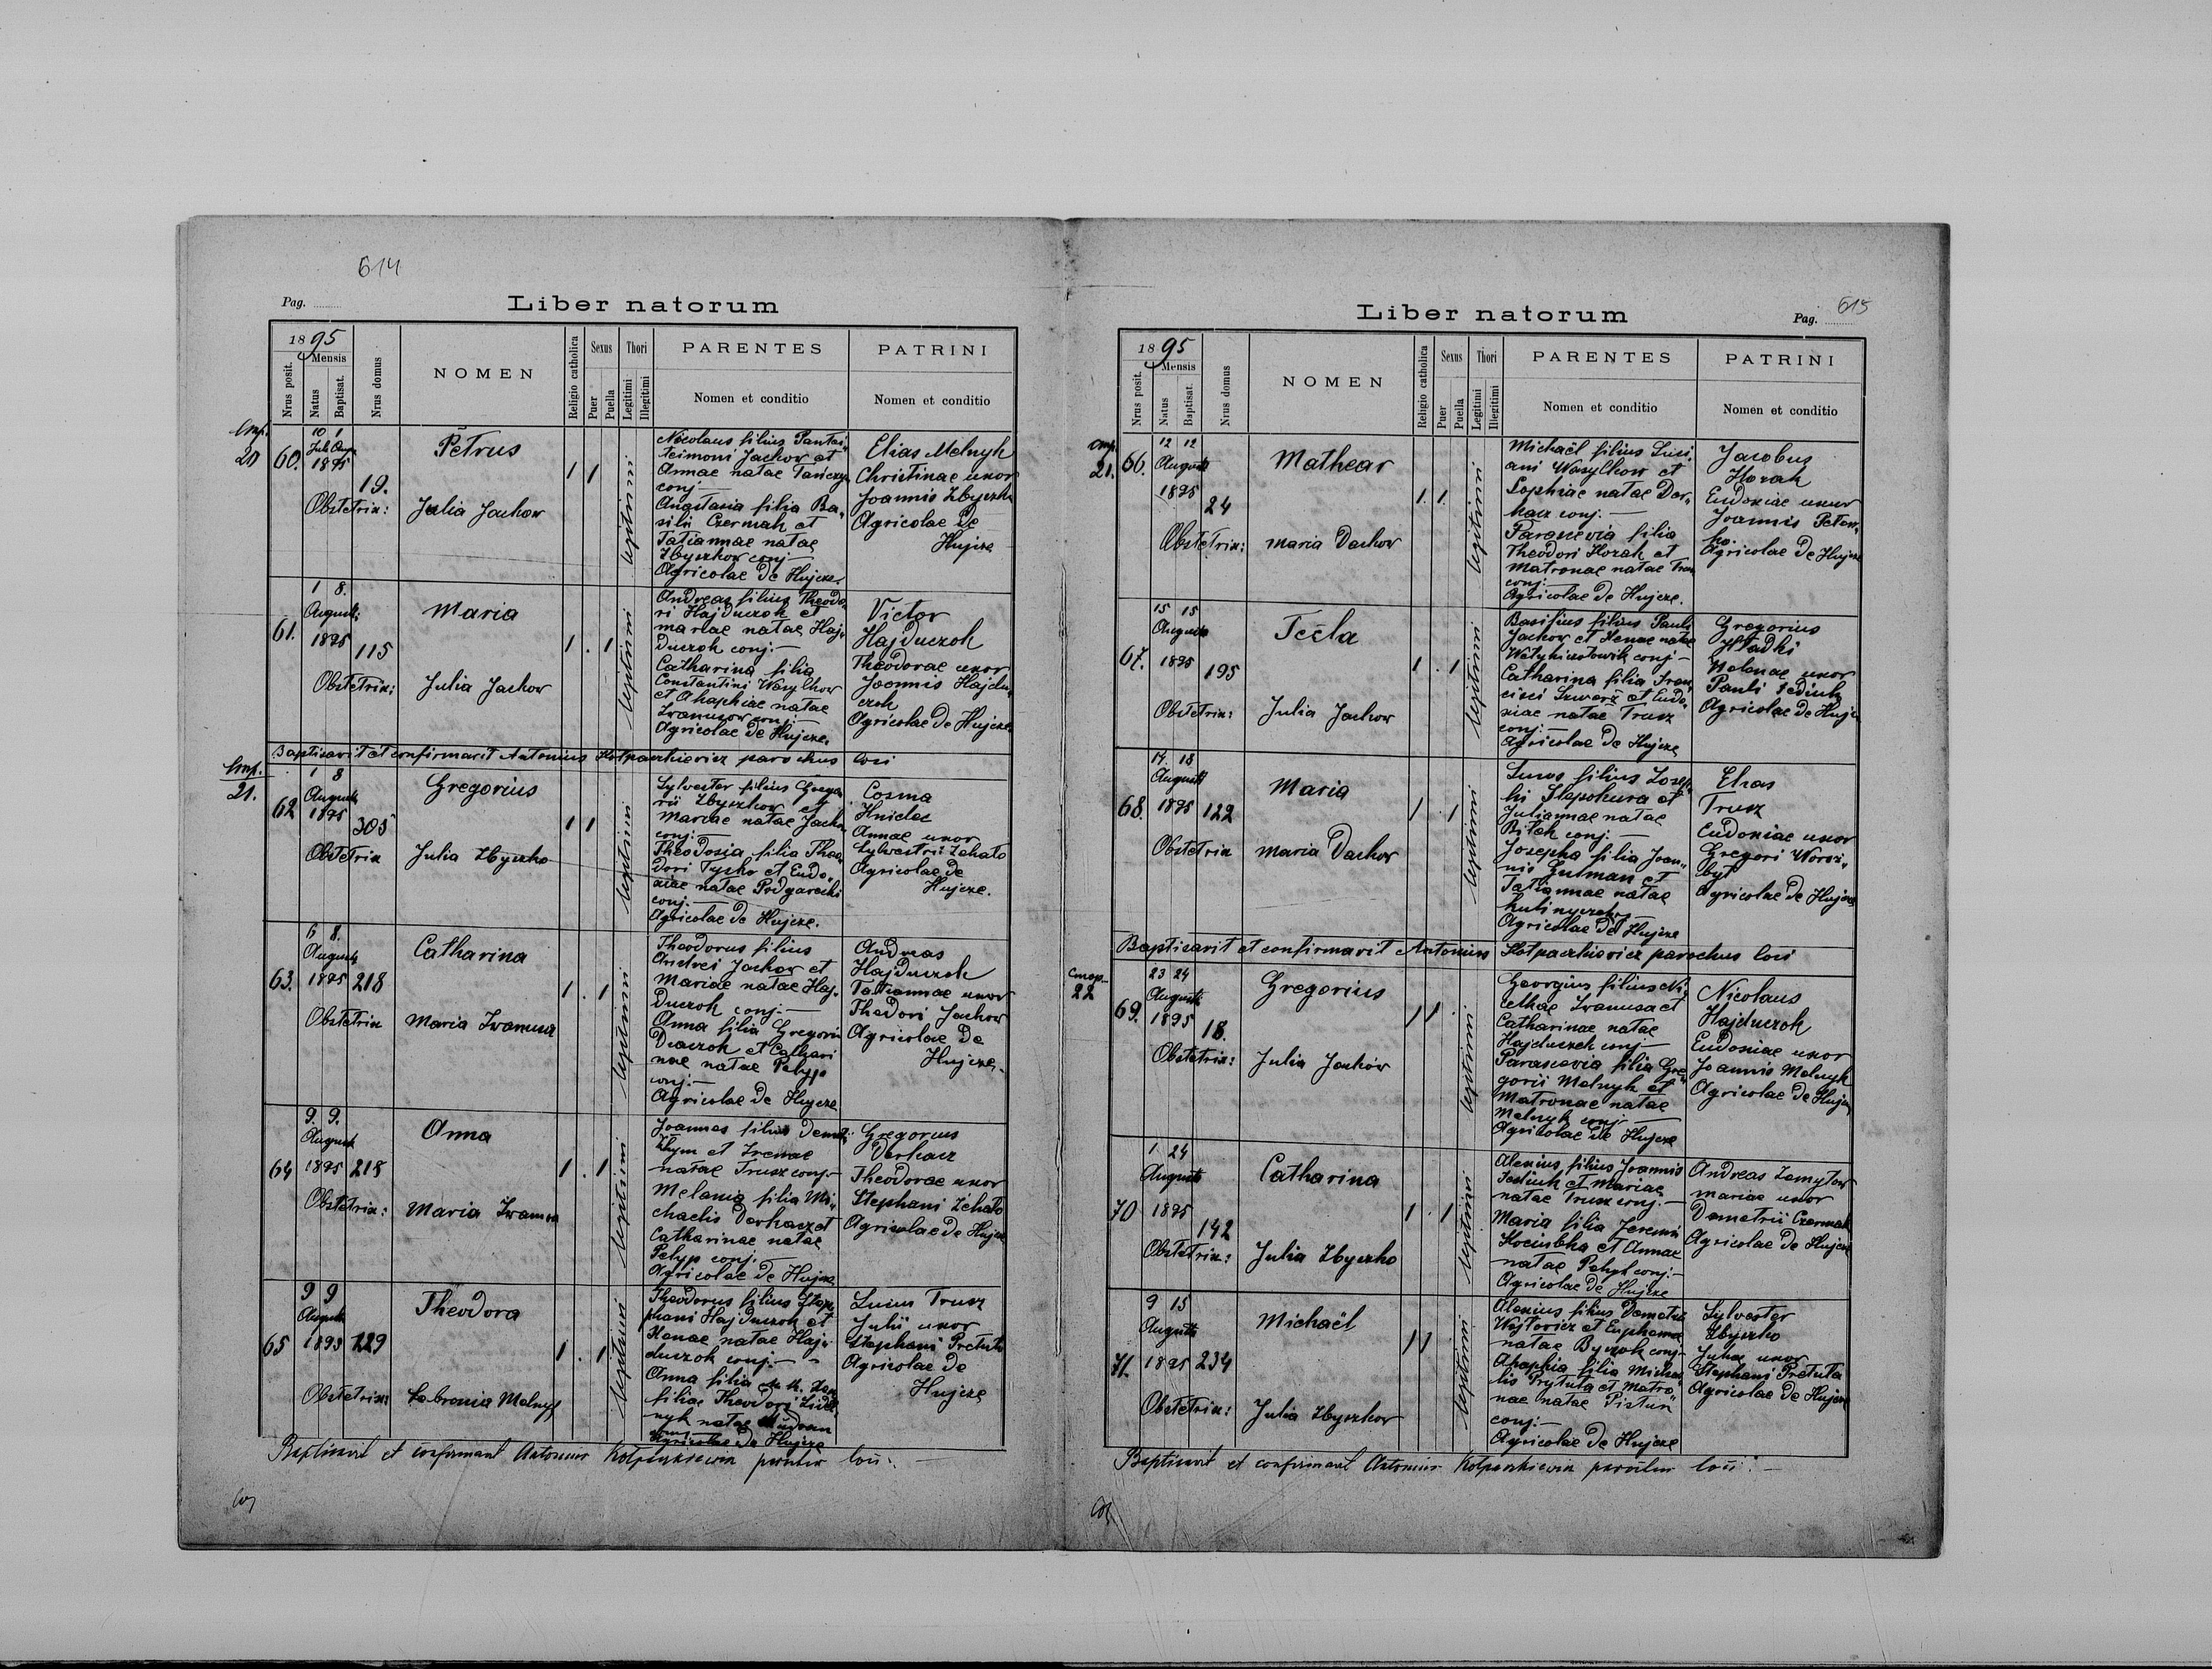 614
Pag.
Liber natorum
1895
Mensis
Nrus posit.
Natus
Baptisat.
Nrus domus
NOMEN
Religio catholica
Sexus
Puer
Puella
Thori
Legitimi
Illegitimi
PARENTES
Nomen et conditio
PATRINI
Nomen et conditio
20
60.
10 1
Juli Aug.
1895
19.
Petrus
Obstetrix: Julia Jachow
1 1
legitimi
Nicolaus filius Pantaleimoni Jachow et
Annae natae
conj.
Anastasia filia Ba-
silii Czermak et
Tatiannae natae
Zbyszkow conj
Agricolae de Hujcze.
Elias Melnyk
Christinae uxor
Joannis Zbyszko
Agricolae de
Hujcze
61.
1 8.
Augusti
1895
115
Maria
Obstetrix: Julia Jachow
1 . 1
legitimi
Andreas filius Theodo-
ri Hajduczok et
Mariae natae Haj-
duczok conj.—
Catharina filia
Constantini Wasylkow
et Ahaphiae natae
Iwanuzow conj.—
Agricolae de Hujcze.
Victor
Hajduczok
Theodorae uxor
Joannis Hajdu-
czok
Agricolae de Hujcze.
Baptisavit et confirmavit Antonius Kolpaczkiewicz parochus loci
21.
62
1 8
Augusti
1895
305
Gregorius
Obstetrix Julia Zbyszko
1 1
legitimi
Sylvester filius Grego-
rii Zbyszkow et
Mariae natae Jachow
conj.—
Theodosia filia Theo-
dori Tyzko et Eudo-
xiae natae Podgarecki
conj.—
Agricolae de Hujcze.
Cosma
Hnidec
Annae uxor
Sylvestrii Zehalo
Agricolae de
Hujcze.
63.
6 8.
Augusti
1895 218
Catharina
Obstetrix Maria Iwanusa
1 . 1
legitimi
Theodorus filius
Andrei Jachow et
Mariae natae Haj-
duczok conj.—
Anna filia Gregorii
Diaczok et Cathari
nae natae Pelyp
conj.—
Agricolae de Hujcze
Andreas
Hajduczok
Tatiannae uxor
Theodori Jachow
Agricolae de
Hujcze.
64
9. 9.
Augusti
1895 218
Anna
Obstetrix: Maria Iwanusa
1 . 1
legitimi
Joannes filius Demetri
Klym et Irenae
natae Trusz conj.—
Melania filia Mi-
chaelis Derkacz et
Catharinae natae
Pelyp conj.—
Agricolae de Hujcze
Gregorius
Derkacz
Theodorae uxor
Stephani Zehalo
Agricolae de Hujcze
65
9 9
Augusti
1895 229
Theodora
Obstetrix: Febronia Melnyk
1 . 1
legitimi
Theodorus filius Ste-
phani Hajduczok et
Xenae natae Haj-
duczok conj.—
Anna filia
filiae Theodori
natae
Agricolae de Hujcze
Lucius Trusz
Julii uxor
Stephani Pretula
Agricolae de
Hujcze
Baptisavit et confirmavit Antonius Kolpaczkiewicz parochus loci.
615
Liber natorum
Pag.
1895
Mensis
Nrus posit.
Natus
Baptisat.
Nrus domus
NOMEN
Religio catholica
Sexus
Puer
Puella
Thori
Legitimi
Illegitimi
PARENTES
Nomen et conditio
PATRINI
Nomen et conditio
21.
66.
12 12
Augusti
1895
24
Mathear
Obstetrix: Maria Dachow
1. 1.
legitimi
Michaël filius Luci-
ani Wasylkow et
Sophiae natae Der-
kacz conj.—
Parascevia filia
Theodori Horak et
Matronae natae Trusz
conj.—
Agricolae de Hujcze.
Jacobus
Horak
Eudoxiae uxor
Joannis Peten-
ko.
Agricolae de Hujcze
67.
15 15
Augusti
1895
195
Tecla
Obstetrix: Julia Jachow
1 . 1
legitimi
Basilius filius Pauli
Jachow et Xenae natae
conj—
Catharina filia Fran-
cisci Szwarz et Eudo-
xiae natae Trusz
conj.—
Agricolae de Hujcze
Gregorius
Hladki
Melanae uxor
Pauli Fediuk
Agricolae de Hujcze
68.
17. 18
Augusti
1895 122
Maria
Obstetrix Maria Dachow
1 . 1
legitimi
Lucas filius Jose-
phi Slepokura et
Juliannae natae
Bilak conj.—
Josepha filia Joan-
nis Gutman et
Tatiannae natae
Agricolae de Hujcze
Elias
Trusz
Eudoxiae uxor
Gregori Worob-
byt
Agricolae de Hujcze
Baptisavit et confirmavit Antonius Kolpaczkiewicz parochus loci
22
69.
23 24
Augusti
1895
18.
Gregorius
Obstetrix: Julia Jachów
1 1
legitimi
Georgius filius Ni-
cethae Iwanusa et
Catharinae natae
Hajduczok conj—
Parascevia filia Gre-
gorii Melnyk et
Matronae natae
Melnyk conj—
Agricolae de Hujcze
Nicolaus
Hajduczok
Eudoxiae uxor
Joannis Melnyk
Agricolae de Hujcze
70
1 24
Augusti
1895
142
Catharina
Obstetrix: Julia Zbyszko
1 . 1
legitimi
Alexius filius Joannis
Fediuk et Mariae
natae Trusz conj.—
Maria filia Jeremii
Kociubka et Annae
natae Pelyp conj.—
Agricolae de Hujcze
Andreas Zamylow
Mariae uxor
Demetrii Czermak
Agricolae de Hujcze
71.
9 15
Augusti
1895 234
Michaël
Obstetrix: Julia Zbyszkow
1 1
legitimi
Alexius filius Demetrii
Wojtowicz et Euphemiae
natae Byczok conj—
Ahaphia filia Michae-
lis Prytula et Matro-
nae natae Pistun
conj.—
Agricolae de Hujcze
Sylvester
Zbyszko
Juliae uxor
Stephani Pretula
Agricolae de Hujcze
Baptisavit et confirmavit Antonius Kolpaczkiewicz parochus loci.—